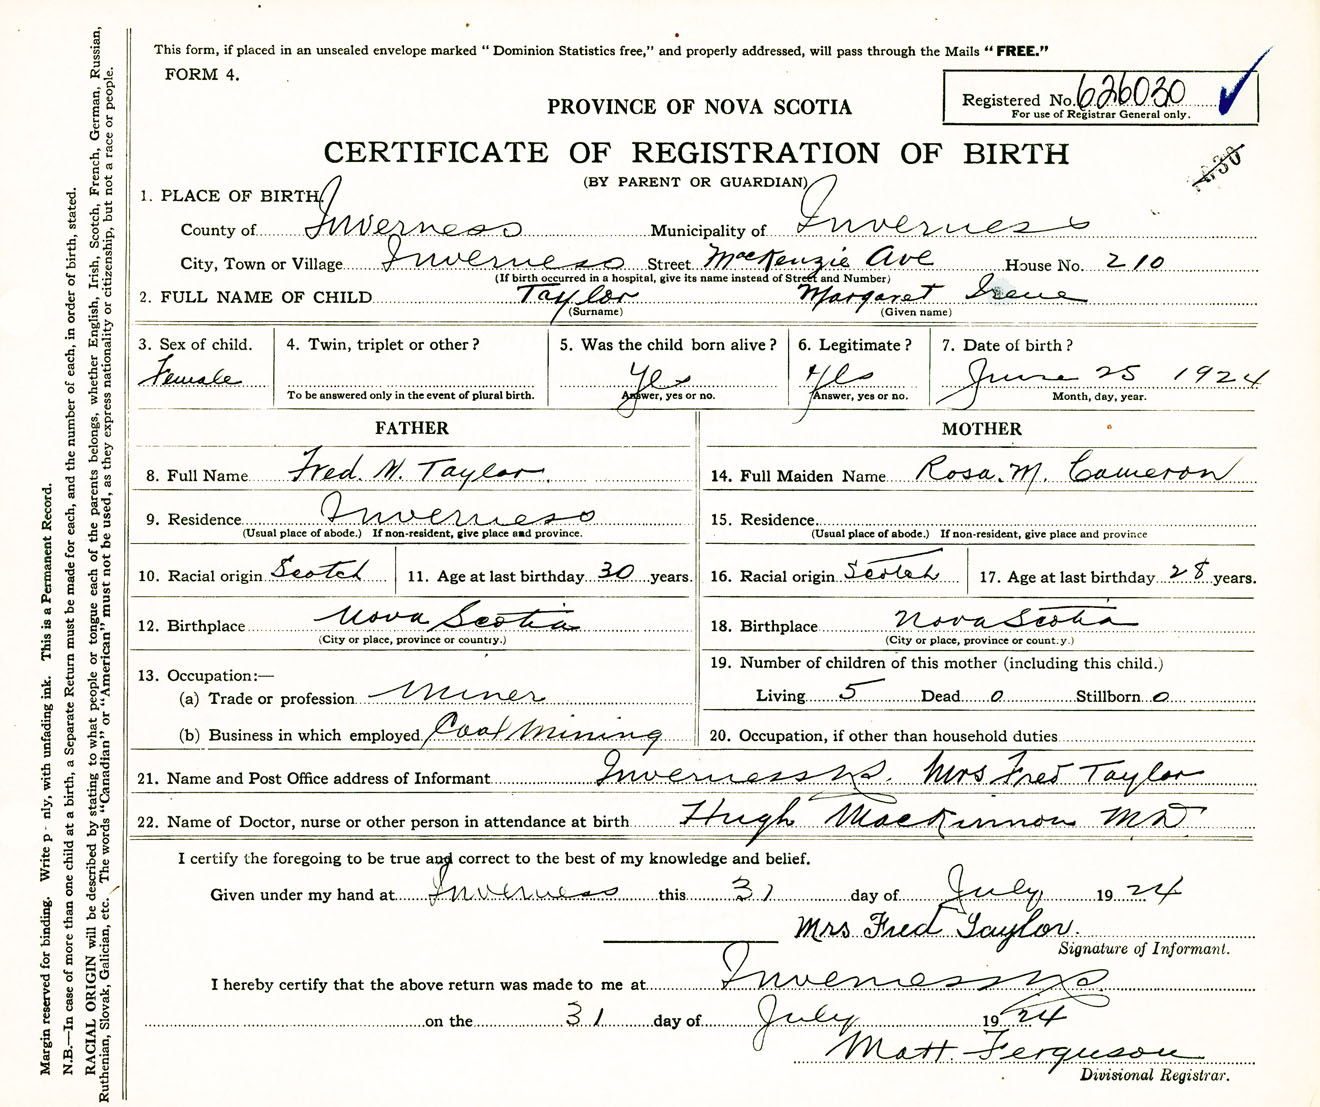 This form, if placed in an unsealed envelope marked “ Dominion Statistics free,” and properly addressed, will pass through the Mails “ FREE.”
FORM 4.
Registered No. 626030
For use of Registrar General only.
PROVINCE OF NOVA SCOTIA
CERTIFICATE OF REGISTRATION OF BIRTH
(BY PARENT OR GUARDIAN)
1. PLACE OF BIRTH
County of Inverness Municipality of Inverness
City, Town or Village Inverness Street MacKenzie Ave House No. 210
(If birth occurred in a hospital, give its name instead of Street and Number)
2. FULL NAME OF CHILD Taylor Margaret Irene
(Surname) (Given name)
3. Sex of child. 4. Twin, triplet or other? 5. Was the child born alive? 6. Legitimate? 7. Date of birth?
Female Yes Yes June 25 1924
To be answered only in the event of plural birth. Answer, yes or no. Answer, yes or no. Month, day, year.
FATHER MOTHER
8. Full Name Fred. N. Taylor. 14. Full Maiden Name Rosa. M. Cameron
9. Residence Inverness 15. Residence
(Usual place of abode.) If non-resident, give place and province. (Usual place of abode.) If non-resident, give place and province
10. Racial origin Scotch 11. Age at last birthday 30 years. 16. Racial origin Scotch 17. Age at last birthday 28 years.
12. Birthplace Nova Scotia 18. Birthplace Nova Scotia
(City or place, province or country.) (City or place, province or country.)
13. Occupation:— 19. Number of children of this mother (including this child.)
(a) Trade or profession Miner Living 5 Dead 0 Stillborn 0
(b) Business in which employed Coal Mining 20. Occupation, if other than household duties
21. Name and Post Office address of Informant Inverness NS. Mrs Fred Taylor
22. Name of Doctor, nurse or other person in attendance at birth Hugh MacKinnon MD
I certify the foregoing to be true and correct to the best of my knowledge and belief.
Given under my hand at Inverness this 31 day of July 19 24
Mrs Fred Taylor.
Signature of Informant.
I hereby certify that the above return was made to me at Inverness NS
on the 31 day of July 19 24
Matt Ferguson
Divisional Registrar.
Margin reserved for binding. Write nly, with unfading ink. This is a Permanent Record.
N.B.—In case of more than one child at a birth, a Separate Return must be made for each, and the number of each, in order of birth, stated.
RACIAL ORIGIN will be described by stating to what people or tongue each of the parents belongs, whether English, Irish, Scotch, French, German, Russian,
Ruthenian, Slovak, Galician, etc. The words “Canadian” or “American” must not be used, as they express nationality or citizenship, but not a race or people.